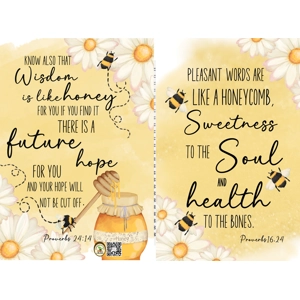 KNOW ALSO THAT
Wisdom
is like honey
FOR YOU IF YOU FIND IT
THERE IS A
future
hope
FOR YOU
AND YOUR HOPE WILL
NOT BE CUT OFF.
Proverbs 24:14
PLEASANT WORDS ARE
LIKE A HONEYCOMB,
Sweetness
TO THE Soul
AND
health
TO THE BONES.
Proverbs 16:24